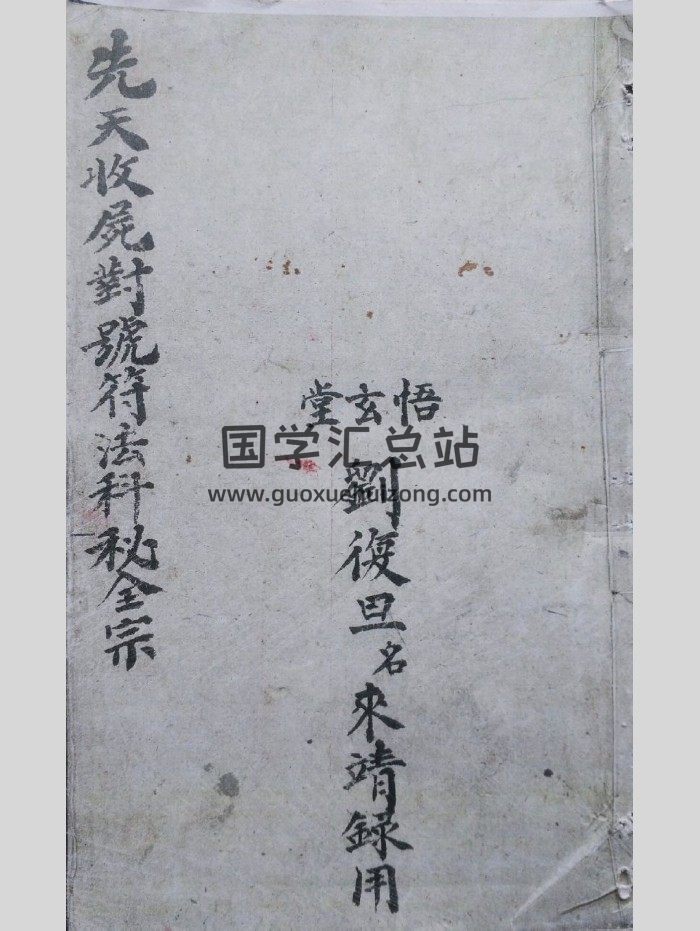 悟玄堂
劉復旦名來靖録用
先天收屍對號符法科秘全宗
国学汇总站
www.guoxuehuizong.com